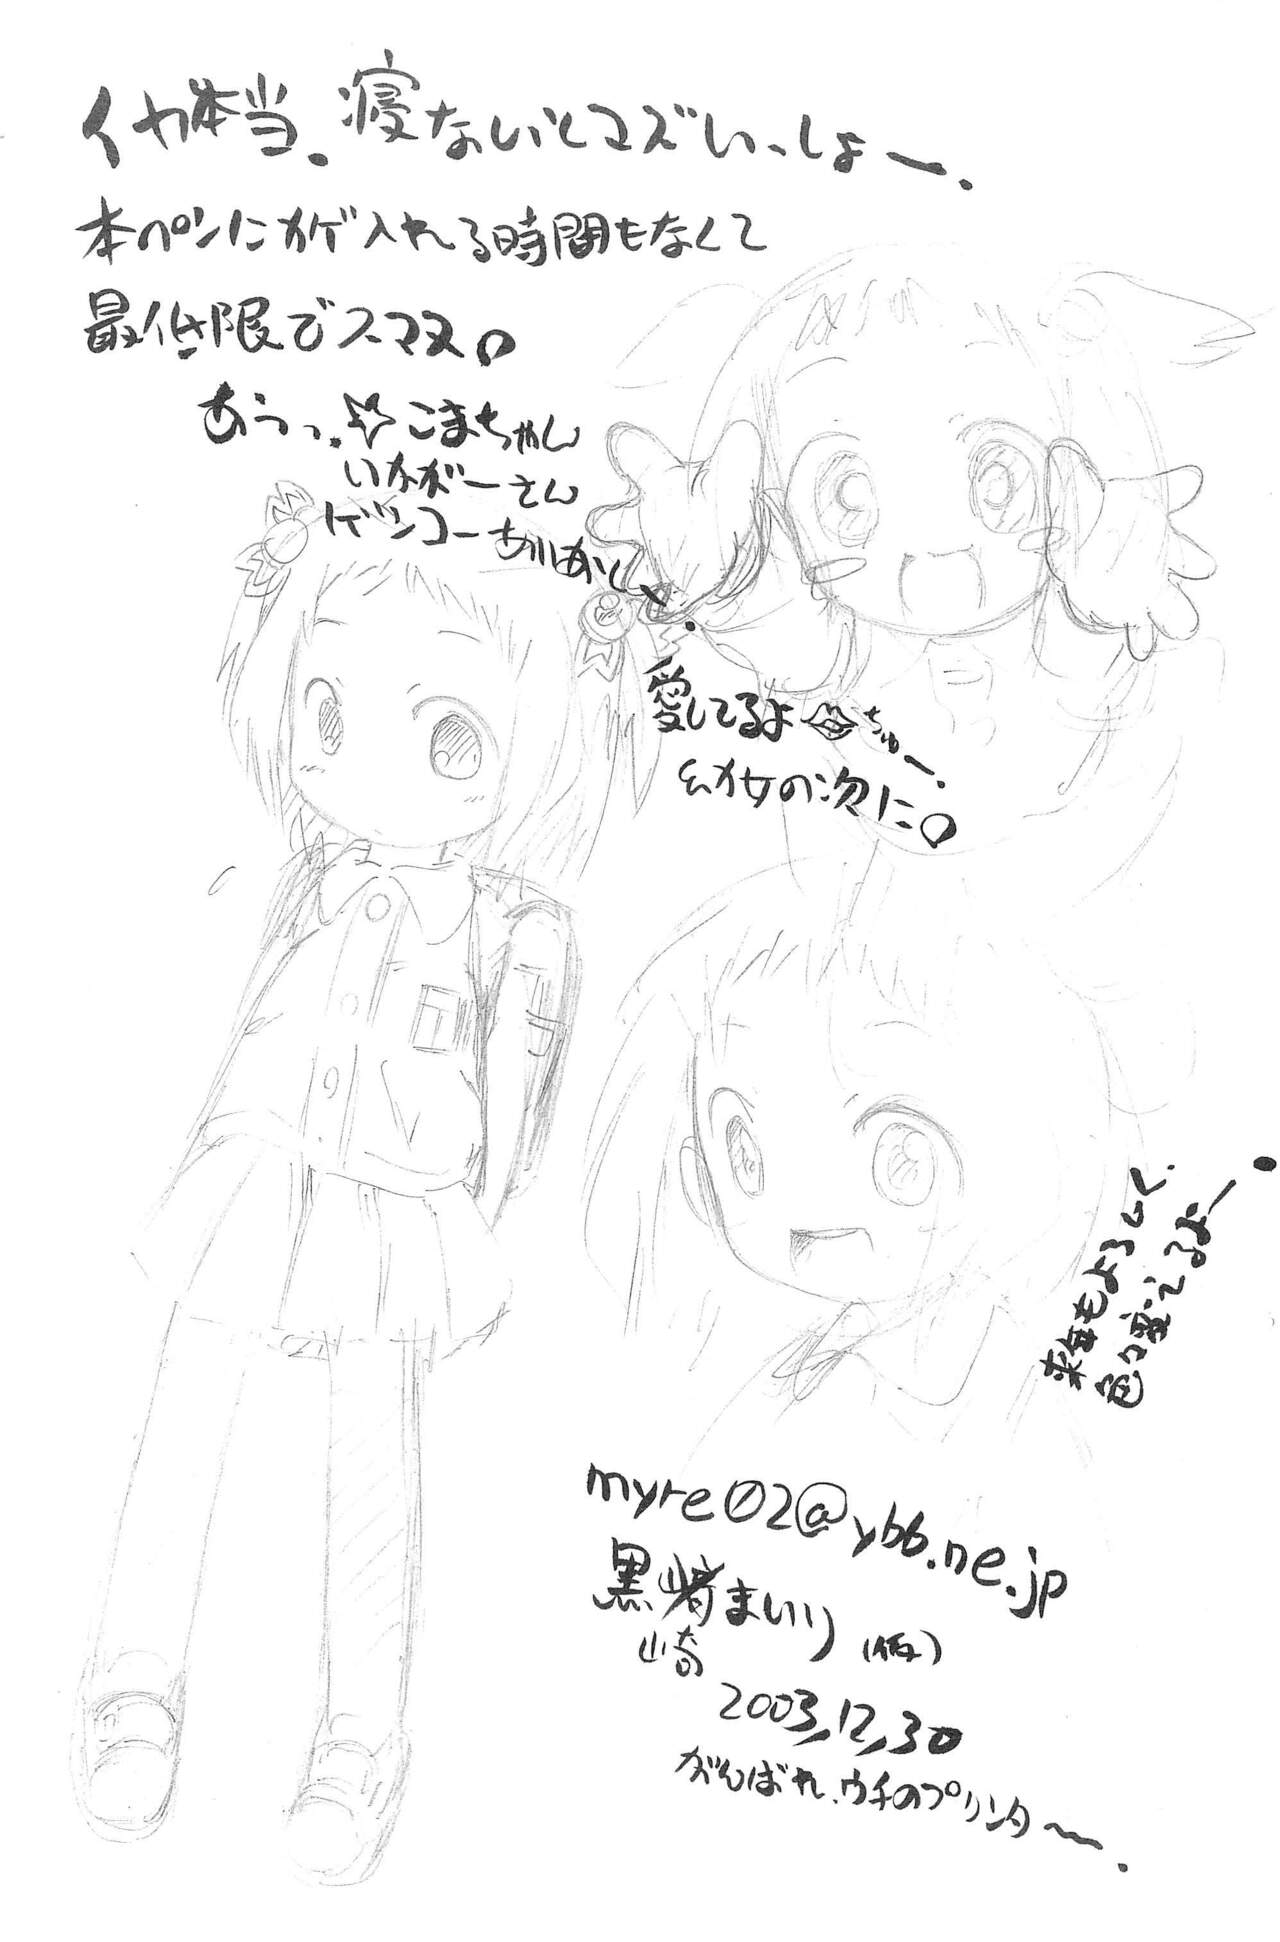 イヤ本当、寝ないとマズいっしょー。
本ペンにカゲ入れる時間もなくて
最低限でスマヌ。
あうっ。☆こまちゃん
いかボーさん
ゲツコー
愛してるよ ちゅー。
幼女の次に。
来年もよろしく、
色々変えるよー。
myre02@ybb.ne.jp
黒崎まいり(仮)
崎
2003,12,30
がんばれ、ウチのプリンタ〜。